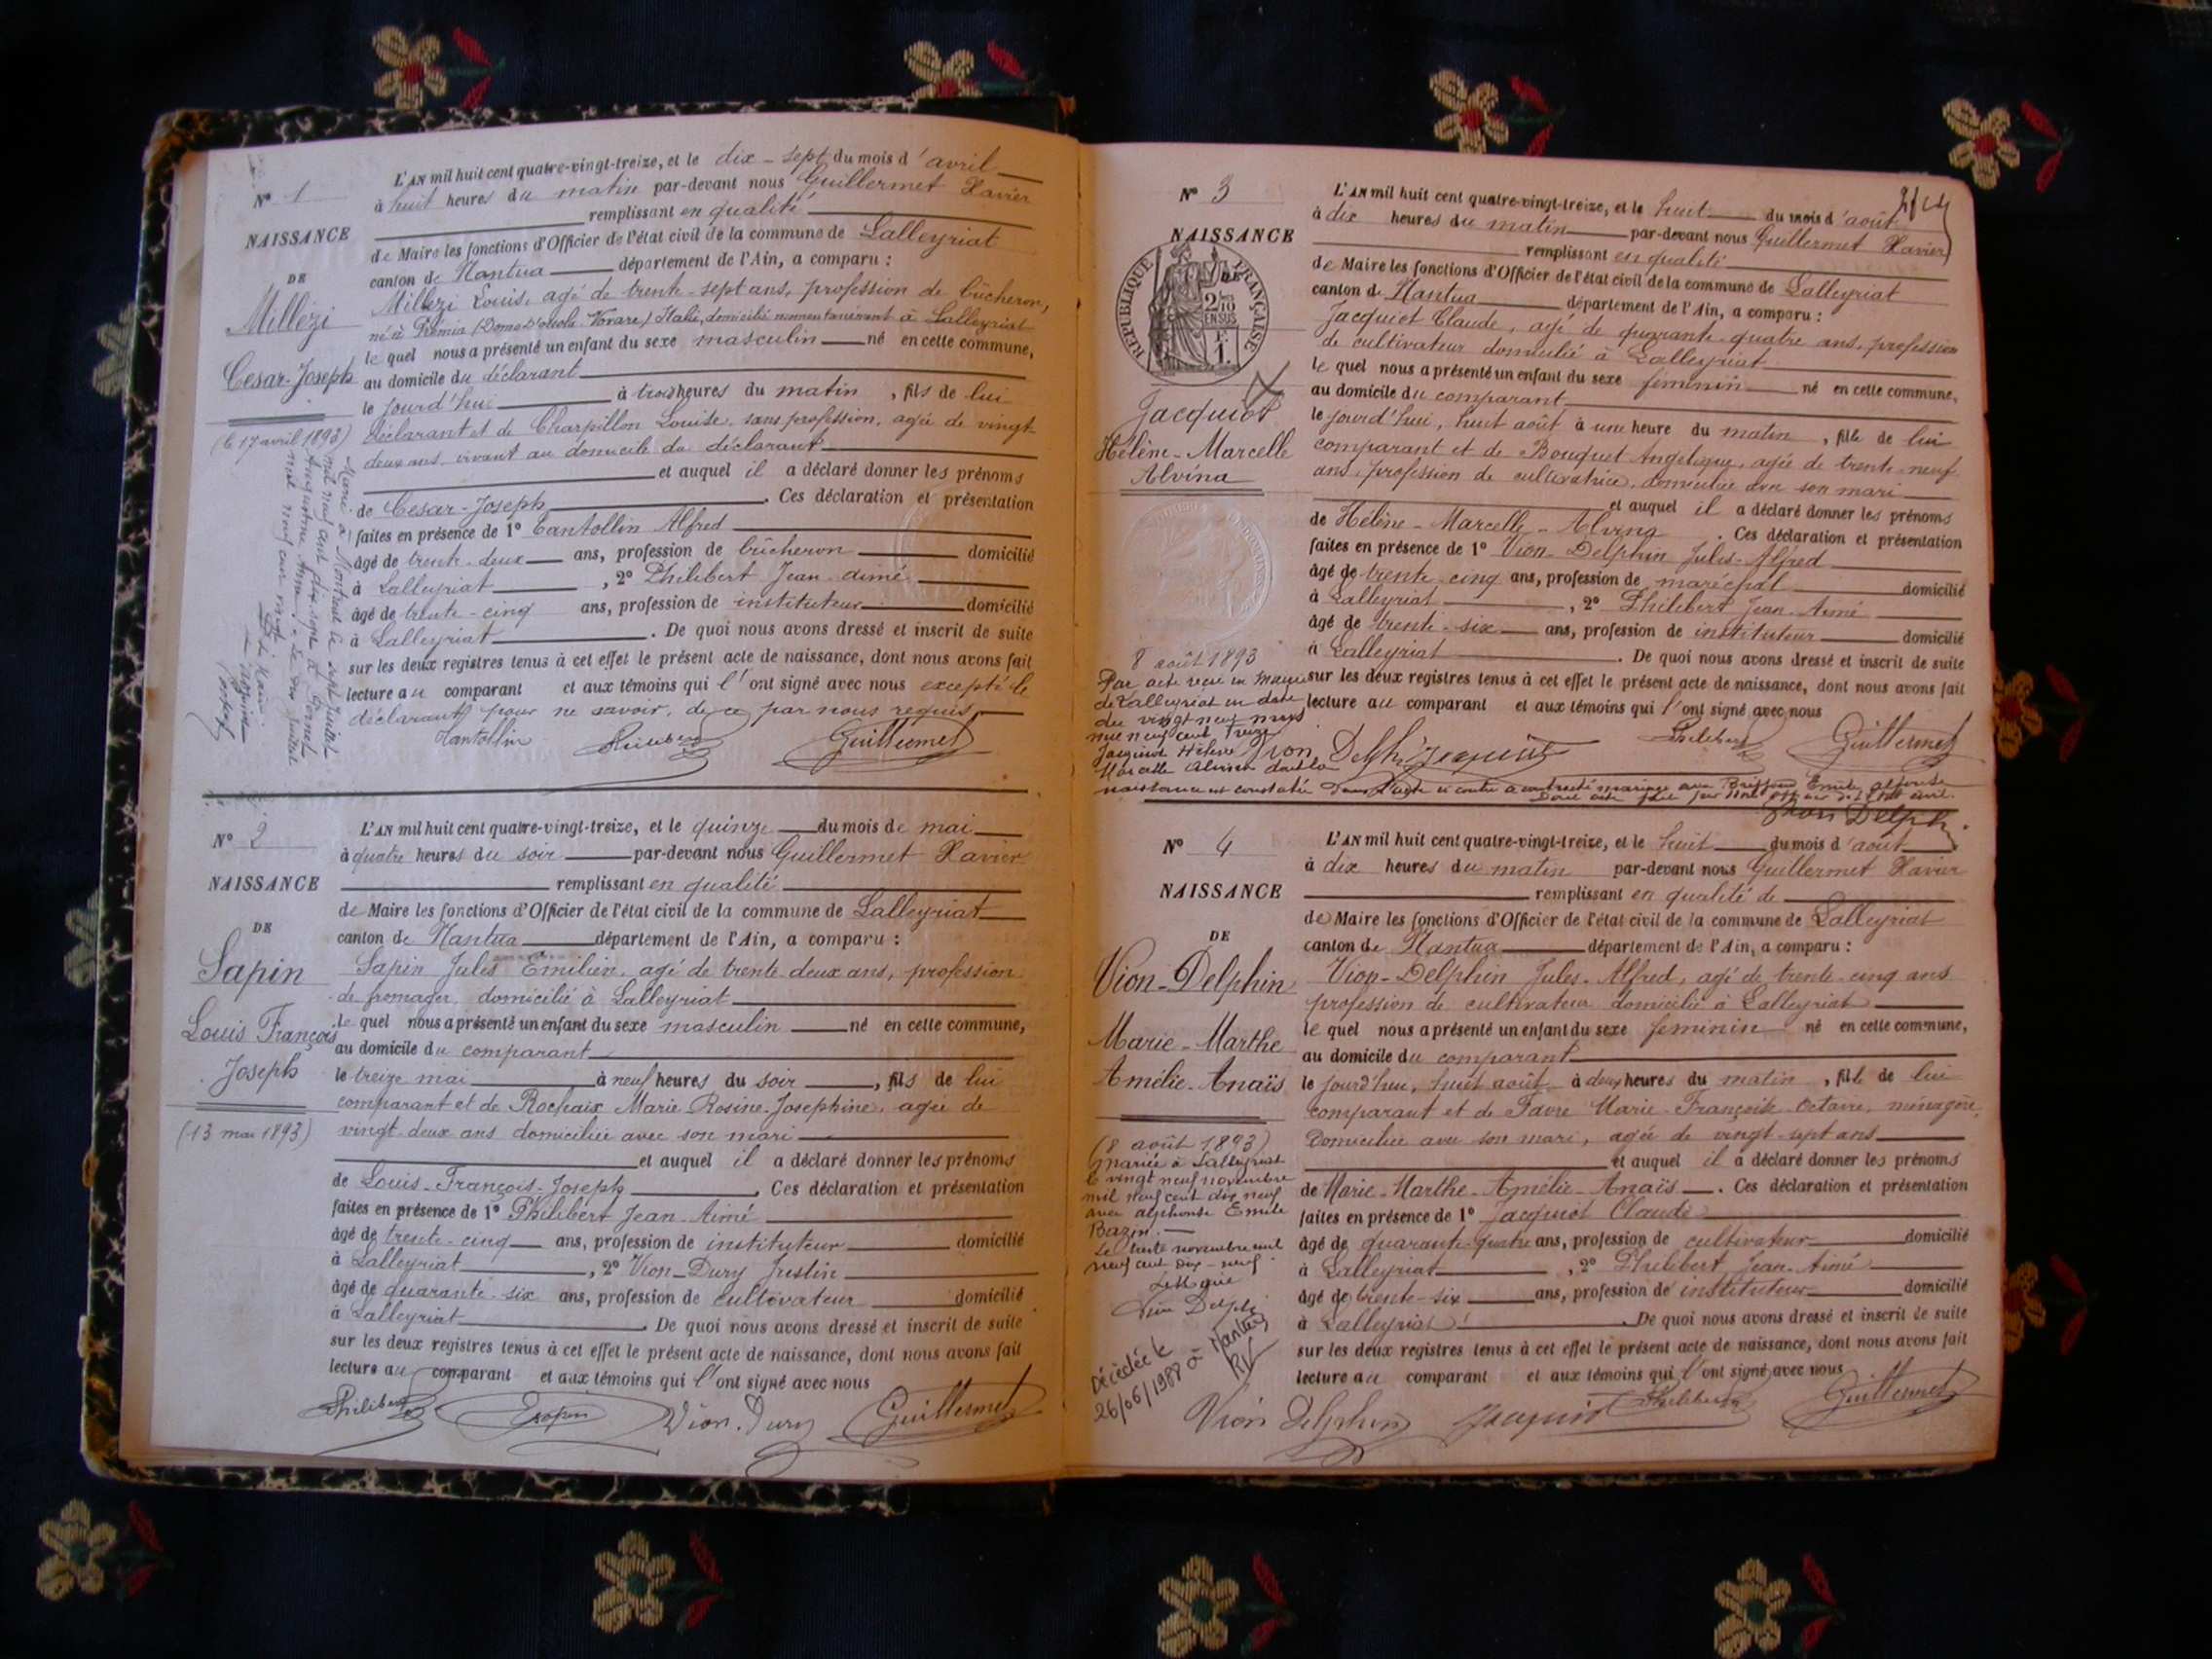 N° 1
NAISSANCE
DE
Millézi
Cesar-Joseph
(le 17 avril 1893)
L'AN mil huit cent quatre-vingt-treize, et le dix-sept du mois d'avril
à huit heures du matin par-devant nous Guillermet Xavier
remplissant en qualité
de Maire les fonctions d'Officier de l'état civil de la commune de Lalleyriat
canton de Nantua département de l'Ain, a comparu :
Millézi Louis, agé de trente-sept ans, profession de bûcheron,
né à Italie, domicilié momentanément à Lalleyriat
le quel nous a présenté un enfant du sexe masculin né en cette commune,
au domicile du déclarant
le jourd'hui à trois heures du matin, fils de lui
déclarant et de Charpillon Louise, sans profession, agée de vingt-
deux ans, vivant au domicile du déclarant
et auquel il a déclaré donner les prénoms
de Cesar-Joseph. Ces déclaration et présentation
faites en présence de 1° Tantollin Alfred
âgé de trente-deux ans, profession de bûcheron domicilié
à Lalleyriat, 2° Philibert Jean-aimé
âgé de trente-cinq ans, profession de instituteur domicilié
à Lalleyriat. De quoi nous avons dressé et inscrit de suite
sur les deux registres tenus à cet effet le présent acte de naissance, dont nous avons fait
lecture au comparant et aux témoins qui l'ont signé avec nous excepté le
déclarant pour ne savoir, de ce par nous requis
Tantollin Philibert Guillermet
N° 2
NAISSANCE
DE
Sapin
Louis François
Joseph
(13 mai 1893)
L'AN mil huit cent quatre-vingt-treize, et le quinze du mois de mai
à quatre heures du soir par-devant nous Guillermet Xavier
remplissant en qualité
de Maire les fonctions d'Officier de l'état civil de la commune de Lalleyriat
canton de Nantua département de l'Ain, a comparu :
Sapin Jules Emilien, agé de trente deux ans, profession
de fromager, domicilié à Lalleyriat
le quel nous a présenté un enfant du sexe masculin né en cette commune,
au domicile du comparant
le treize mai à neuf heures du soir, fils de lui
comparant et de Rochaix Marie Rosine-Josephine, agée de
vingt-deux ans domiciliée avec son mari
et auquel il a déclaré donner les prénoms
de Louis-François-Joseph. Ces déclaration et présentation
faites en présence de 1° Philibert Jean-Aimé
âgé de trente-cinq ans, profession de instituteur domicilié
à Lalleyriat, 2° Vion-Dury Justin
âgé de quarante-six ans, profession de cultivateur domicilié
à Lalleyriat. De quoi nous avons dressé et inscrit de suite
sur les deux registres tenus à cet effet le présent acte de naissance, dont nous avons fait
lecture au comparant et aux témoins qui l'ont signé avec nous
Philibert Sapin Vion-Dury Guillermet
N° 3
NAISSANCE
DE
RÉPUBLIQUE FRANÇAISE
2/10
EN SUS
F.
1.
Jacquiot
Hélène-Marcelle
Alvina
8 août 1893
Par acte reçu en Mairie
de Lalleyriat en date
du vingt neuf mars
mil neuf cent treize
Jacquiot Hélène
Marcelle Alvina dont la
naissance est constatée dans l'acte ci contre a contracté mariage avec Emile
L'AN mil huit cent quatre-vingt-treize, et le huit du mois d'août
à dix heures du matin par-devant nous Guillermet Xavier
remplissant en qualité
de Maire les fonctions d'Officier de l'état civil de la commune de Lalleyriat
canton de Nantua département de l'Ain, a comparu :
Jacquiot Claude, agé de quarante-quatre ans, profession
de cultivateur domicilié à Lalleyriat
le quel nous a présenté un enfant du sexe féminin né en cette commune,
au domicile du comparant
le jourd'hui, huit août à une heure du matin, fille de lui
comparant et de Bouquet Angélique, agée de trente-neuf
ans, profession de cultivatrice, domiciliée avec son mari
et auquel il a déclaré donner les prénoms
de Hélène-Marcelle-Alvina. Ces déclaration et présentation
faites en présence de 1° Vion-Delphin Jules-Alfred
âgé de trente-cinq ans, profession de maréchal domicilié
à Lalleyriat, 2° Philibert Jean-Aimé
âgé de trente-six ans, profession de instituteur domicilié
à Lalleyriat. De quoi nous avons dressé et inscrit de suite
sur les deux registres tenus à cet effet le présent acte de naissance, dont nous avons fait
lecture au comparant et aux témoins qui l'ont signé avec nous
Philibert Guillermet
Vion Delphin Jacquiot
Vion Delphin
N° 4
NAISSANCE
DE
Vion-Delphin
Marie-Marthe
Amélie-Anaïs
(8 août 1893)
mariée à Lalleyriat
le vingt neuf novembre
mil neuf cent dix neuf
avec Alphonse Emile
Bazin.
Le trente novembre mil
neuf cent dix-neuf
Vion Delphin
Décédée le
26/06/1988 à Nantua
L'AN mil huit cent quatre-vingt-treize, et le huit du mois d'août
à dix heures du matin par-devant nous Guillermet Xavier
remplissant en qualité de
de Maire les fonctions d'Officier de l'état civil de la commune de Lalleyriat
canton de Nantua département de l'Ain, a comparu :
Vion-Delphin Jules-Alfred, agé de trente-cinq ans
profession de cultivateur domicilié à Lalleyriat
le quel nous a présenté un enfant du sexe féminin né en cette commune,
au domicile du comparant
le jourd'hui, huit août à deux heures du matin, fille de lui
comparant et de Favre Marie-Françoise-Octavie, ménagère,
domiciliée avec son mari, agée de vingt-sept ans
et auquel il a déclaré donner les prénoms
de Marie-Marthe-Amélie-Anaïs. Ces déclaration et présentation
faites en présence de 1° Jacquiot Claude
âgé de quarante-quatre ans, profession de cultivateur domicilié
à Lalleyriat, 2° Philibert Jean-Aimé
âgé de trente-six ans, profession de instituteur domicilié
à Lalleyriat. De quoi nous avons dressé et inscrit de suite
sur les deux registres tenus à cet effet le présent acte de naissance, dont nous avons fait
lecture au comparant et aux témoins qui l'ont signé avec nous
Vion Delphin Jacquiot Philibert Guillermet